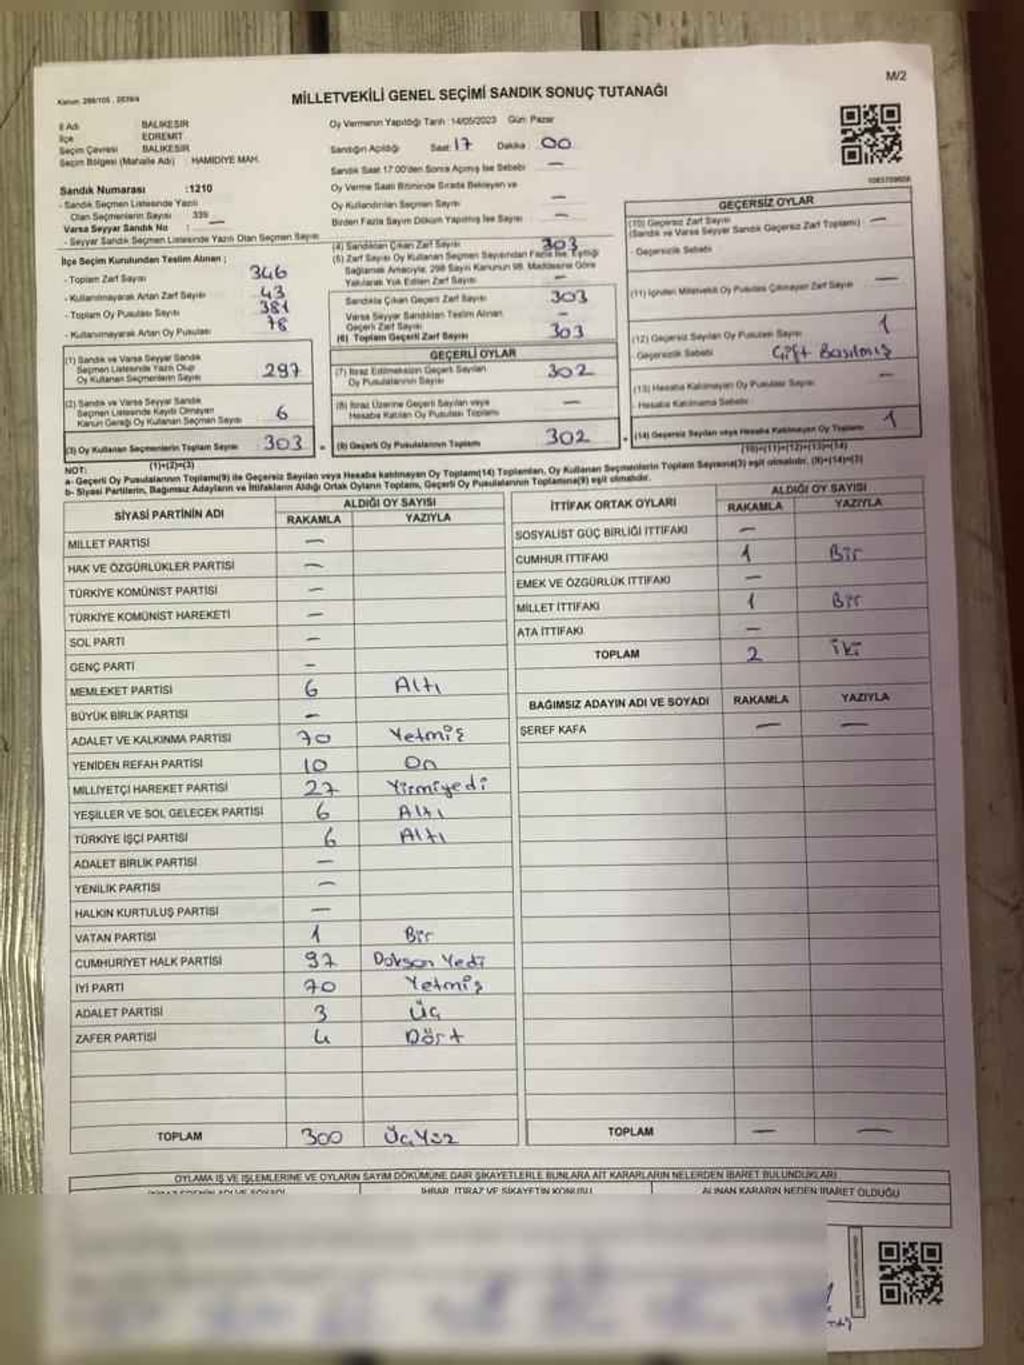 M/2
Kanun: 298/105 , 2839/4
MİLLETVEKİLİ GENEL SEÇİMİ SANDIK SONUÇ TUTANAĞI
İl Adı BALIKESİR
İlçe EDREMİT
Seçim Çevresi BALIKESİR
Seçim Bölgesi (Mahalle Adı) HAMİDİYE MAH.
Sandık Numarası :1210
- Sandık Seçmen Listesinde Yazılı
Olan Seçmenlerin Sayısı 339
Varsa Seyyar Sandık No :
- Seyyar Sandık Seçmen Listesinde Yazılı Olan Seçmen Sayısı
Oy Vermenin Yapıldığı Tarih :14/05/2023 Gün: Pazar
Sandığın Açıldığı Saat 17 Dakika 00
Sandık Saat 17.00'den Sonra Açılmış İse Sebebi —
Oy Verme Saati Bitiminde Sırada Bekleyen ve
Oy Kullandırılan Seçmen Sayısı —
Birden Fazla Sayım Döküm Yapılmış İse Sayısı —
İlçe Seçim Kurulundan Teslim Alınan ;
- Toplam Zarf Sayısı 346
- Kullanılmayarak Artan Zarf Sayısı 43
- Toplam Oy Pusulası Sayısı 381
- Kullanılmayarak Artan Oy Pusulası 78
(1) Sandık ve Varsa Seyyar Sandık
Seçmen Listesinde Yazılı Olup
Oy Kullanan Seçmenlerin Sayısı 297
(2) Sandık ve Varsa Seyyar Sandık
Seçmen Listesinde Kayıtlı Olmayan
Kanun Gereği Oy Kullanan Seçmen Sayısı 6
(3) Oy Kullanan Seçmenlerin Toplam Sayısı 303
(1)+(2)=(3)
(4) Sandıktan Çıkan Zarf Sayısı 303
(5) Zarf Sayısı Oy Kullanan Seçmen Sayısından Fazla İse, Eşitliği
Sağlamak Amacıyla, 298 Sayılı Kanunun 98. Maddesine Göre
Yakılarak Yok Edilen Zarf Sayısı —
Sandıkta Çıkan Geçerli Zarf Sayısı 303
Varsa Seyyar Sandıktan Teslim Alınan
Geçerli Zarf Sayısı —
(6) Toplam Geçerli Zarf Sayısı 303
GEÇERLİ OYLAR
(7) İtiraz Edilmeksizin Geçerli Sayılan
Oy Pusulalarının Sayısı 302
(8) İtiraz Üzerine Geçerli Sayılan veya
Hesaba Katılan Oy Pusulası Toplamı —
= (9) Geçerli Oy Pusulalarının Toplamı 302
GEÇERSİZ OYLAR
(10) Geçersiz Zarf Sayısı
(Sandık ve Varsa Seyyar Sandık Geçersiz Zarf Toplamı) —
- Geçersizlik Sebebi
(11) İçinden Milletvekili Oy Pusulası Çıkmayan Zarf Sayısı —
(12) Geçersiz Sayılan Oy Pusulası Sayısı 1
Geçersizlik Sebebi Çift Basılmış
(13) Hesaba Katılmayan Oy Pusulası Sayısı —
- Hesaba Katılmama Sebebi
+ (14) Geçersiz Sayılan veya Hesaba Katılmayan Oy Toplamı 1
(10)+(11)+(12)+(13)=(14)
NOT:
a- Geçerli Oy Pusulalarının Toplamı(9) ile Geçersiz Sayılan veya Hesaba katılmayan Oy Toplamı(14) Toplamları, Oy Kullanan Seçmenlerin Toplam Sayısına(3) eşit olmalıdır. (9)+(14)=(3)
b- Siyasi Partilerin, Bağımsız Adayların ve İttifakların Aldığı Ortak Oyların Toplamı, Geçerli Oy Pusulalarının Toplamına(9) eşit olmalıdır.
SİYASİ PARTİNİN ADI ALDIĞI OY SAYISI
RAKAMLA YAZIYLA
MİLLET PARTİSİ —
HAK VE ÖZGÜRLÜKLER PARTİSİ —
TÜRKİYE KOMÜNİST PARTİSİ —
TÜRKİYE KOMÜNİST HAREKETİ —
SOL PARTİ —
GENÇ PARTİ —
MEMLEKET PARTİSİ 6 Altı
BÜYÜK BİRLİK PARTİSİ —
ADALET VE KALKINMA PARTİSİ 70 Yetmiş
YENİDEN REFAH PARTİSİ 10 On
MİLLİYETÇİ HAREKET PARTİSİ 27 Yirmiyedi
YEŞİLLER VE SOL GELECEK PARTİSİ 6 Altı
TÜRKİYE İŞÇİ PARTİSİ 6 Altı
ADALET BİRLİK PARTİSİ —
YENİLİK PARTİSİ —
HALKIN KURTULUŞ PARTİSİ —
VATAN PARTİSİ 1 Bir
CUMHURİYET HALK PARTİSİ 97 Doksan Yedi
İYİ PARTİ 70 Yetmiş
ADALET PARTİSİ 3 Üç
ZAFER PARTİSİ 4 Dört
TOPLAM 300 ÜçYüz
İTTİFAK ORTAK OYLARI ALDIĞI OY SAYISI
RAKAMLA YAZIYLA
SOSYALİST GÜÇ BİRLİĞİ İTTİFAKI —
CUMHUR İTTİFAKI 1 Bir
EMEK VE ÖZGÜRLÜK İTTİFAKI —
MİLLET İTTİFAKI 1 Bir
ATA İTTİFAKI —
TOPLAM 2 iki
BAĞIMSIZ ADAYIN ADI VE SOYADI RAKAMLA YAZIYLA
ŞEREF KAFA — —
TOPLAM — —
OYLAMA İŞ VE İŞLEMLERİNE VE OYLARIN SAYIM DÖKÜMÜNE DAİR ŞİKAYETLERLE BUNLARA AİT KARARLARIN NELERDEN İBARET BULUNDUKLARI
İHBAR, İTİRAZ VE ŞİKAYETİN KONUSU ALINAN KARARIN NEDEN İBARET OLDUĞU